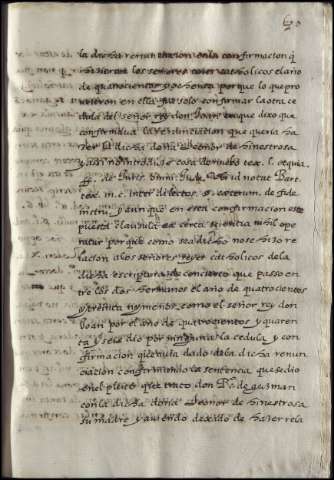 la dicha renunciacion en la confirmacion q̃
hizieron los señores reyes catholicos el año
de quatrocientos y ochenta por que lo que pro
veieron en ella fue solo confirmar la otra ce
dula del señor rey don Joan en que dixo que
confirmaua la renunciacion que queria ha
zer la dicha doña leonor de hinestrosa
y assi no introduxo cosa de nuebo tex. l.
ff. de Iure. omni. Iudi. ubi id notat Bart.
tex. in c. inter dilectos. §. cæterum. de fide
instru. y aunque en esta confirmacion este
puesta clausula ex certa scientia nihil ope
ratur porque como sea dicho no se hizo re
lacion a los señores reyes catholicos de la
dicha escriptura de concierto que passo en
tre los dos hermanos el año de quatrocientos
y treinta ny menos como el señor rey don
Joan por el año de quatrocientos y quaren
ta y seis dio por ninguna la cedula y con
firmacion que auia dado de la dicha renun
ciacion confirmando la sentencia que se dio
en el pleito que trato don P.º de guzman
con la dicha doña Leonor de hinestrosa
su madre y auiendo dexado de hazer rela